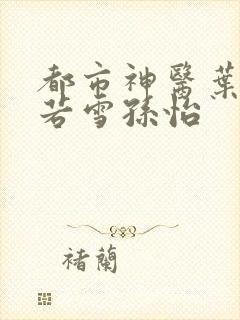 都市神醫葉
若雪孫怡
褚蘭